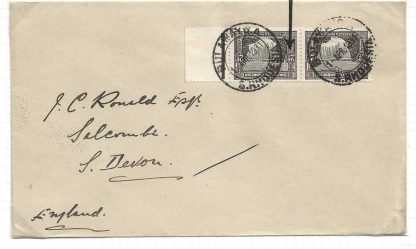 BULAWAYO
J. C. Ronald Esq.
Salcombe.
S. Devon.
England.